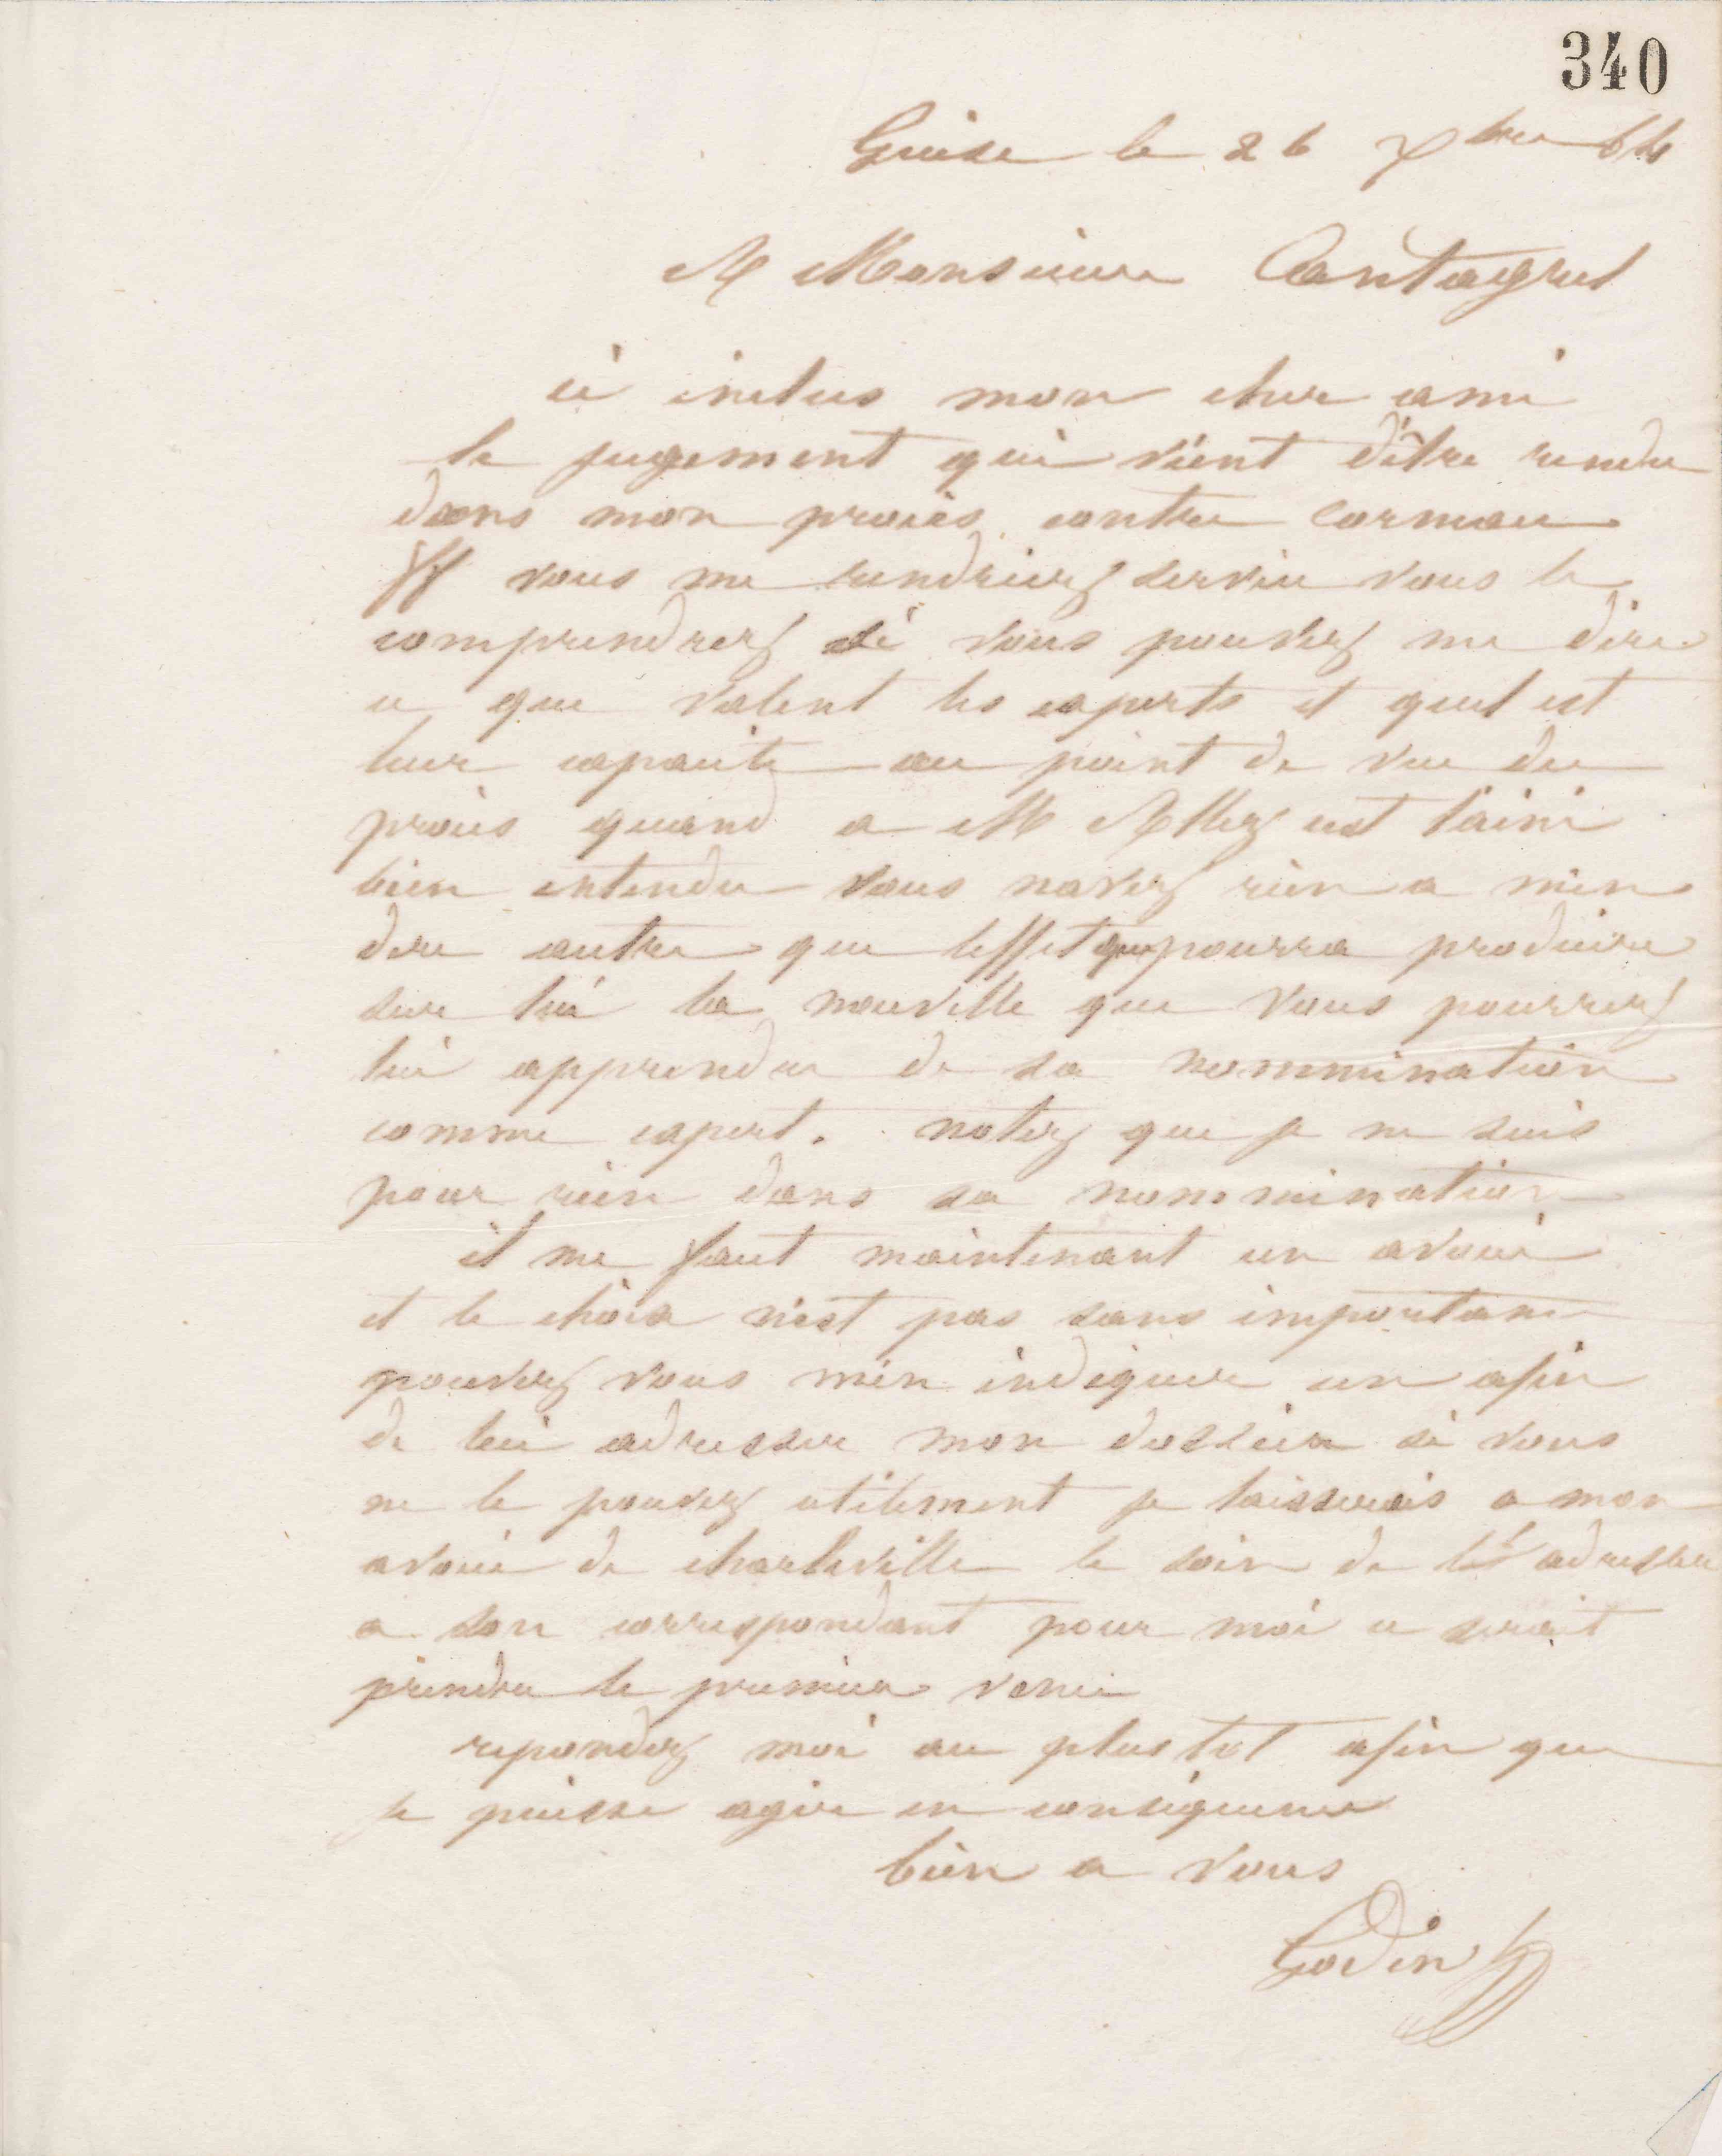 340
Guise le 26 Xbre 64
A Monsieur Cantagrel
ci inclus mon cher ami
le jugement qui vient d'être rendu
dans mon procès contre Corneau
vous me rendriez service vous le
comprendrez si vous pouviez me dire
ce que valent les experts et quel est
leur capacité au point de vue du
procès quand a M Allez est lainé
bien entendu vous navez rien a men
dire autre que leffet que pourra produire
sur lui la nouvelle que vous pourrez
lui apprendre de sa nommination
comme expert. notez que je ne suis
pour rien dans sa nommination
il me faut maintenant un avoué
et le choix n'est pas sans importance
pouvez vous m'en indiquer un afin
de lui adresser mon dossier si vous
ne le pouvez utilement je laisserais a mon
avoué de charleville le soin de l' adresser
a son correspondant pour moi ce serait
prendre le premier venu
repondez moi au plus tot afin que
je puisse agir en conséquence
bien a vous
Godin